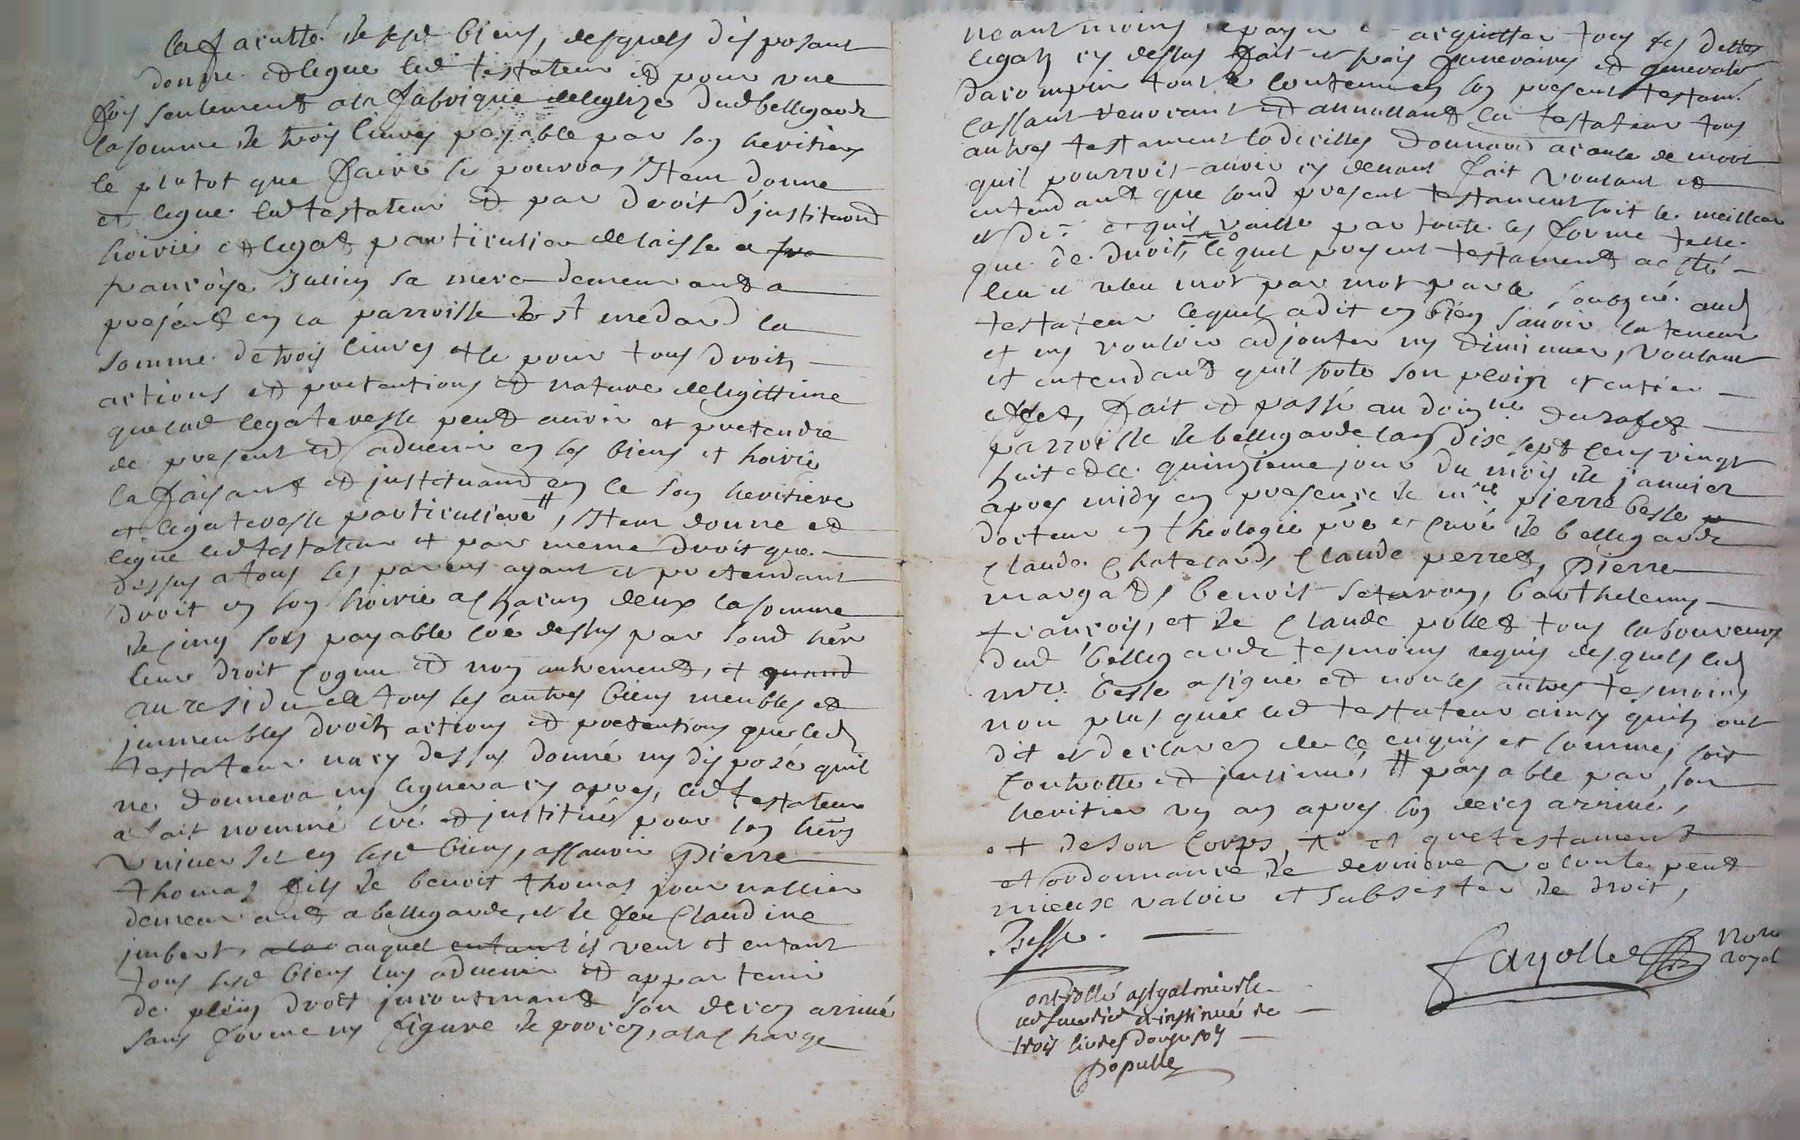 la faculté de sesd biens, desquels disposant
donne et legue led testateur et pour une
fois seulement a la fabrique de leglize dud bellegarde
la somme de trois livres payable par son heritiers
le plutot que faire se pourra, Item donne
et legue led testateur et par droit d'justituond
hoirie et legat particulier delaisse a fra
françoise Julien sa mere demeurant a
présent en la parroisse de st medard la
somme de trois livres et ce pour tous droits
actions et pretentions et nature de legittime
que lad legateresse peut avoir et pretendre
de present et advenir en ses biens et hoirie
la faisant et justituand en ce son heritiere
et legateresse particuliere ⋕, Item donne et
legue led testateur et par meme droit que
dessus a tous les parens ayant et pretendant
droit en son hoirie a chacun deux la somme
de cinq sols payable coe dessus par sond hér
leur droit cognu et non autrement, et quand
au residu de tous les autres biens meubles et
jmmeubles droits actions et pretentions que led
testateur na cy dessus donné ny disposé quil
ne donnera ny leguera cy apres, led testateur
a fait nommé créé et justitué pour son hérs
universel en sesd biens, assavoir Pierre
thomas fils de benoit thomas journallier
demeurant a bellegarde, et de feu Claudine
jmbert, auquel entant il veut et entant
tous sesd biens luy advenir et appartenir
de plein droit jncontinant son deces arrivé
sans forme ny figure de proces, a la charge
neantmoins de payer et acquitter tous ses dettes
legats cy dessus fait et frais funeraires et generalt
dacomplir tout le contenu en son present testamt
cassant revocant et annullant led testateur tous
autres testament codicilles donnaõn a cause de mort
quil pourroit avoir cy devant fait voulant et
entendant que sond present testament soit le meilleur
et der et quil vaille par toute les forme telle
que de droit, lequel present testament a esté
leu et releu mot par mot par le soubzné aud
testateur lequel a dit en bien sçavoir la teneur
et ny vouloir adjouter ny diminuer, voulant
et entendant quil sorte son plein et entier
effet, fait et passé au domine
parroisse de bellegarde lan dix sept cens vingt
huit et le quinzieme jour du mois de janvier
apres midy en presence de mre pierre besse
docteur en theologie pbre et curé de bellegarde
Claude Chatelard, Claude perret, Pierre
margat, benoit, barthelemy
françois, et de Claude pollet tous laboureurs
dud bellegarde tesmoins requis desquels led
mre besse a signé et non les autres tesmoins
non plus que led testateur ainsy quils ont
dit et declaré de ce enquis et sommés soit
controllé et jnsinué, ⋕ payable par son
heritier un an apres son deces arrivé,
+ de son corps, et que testament
et ordonnance de derniere volonté peut
mieux valoir et subsister de droit,
Besse.
Fayolle nore
royal
Controllé a st galmier le
trois livres douze sols
Populle